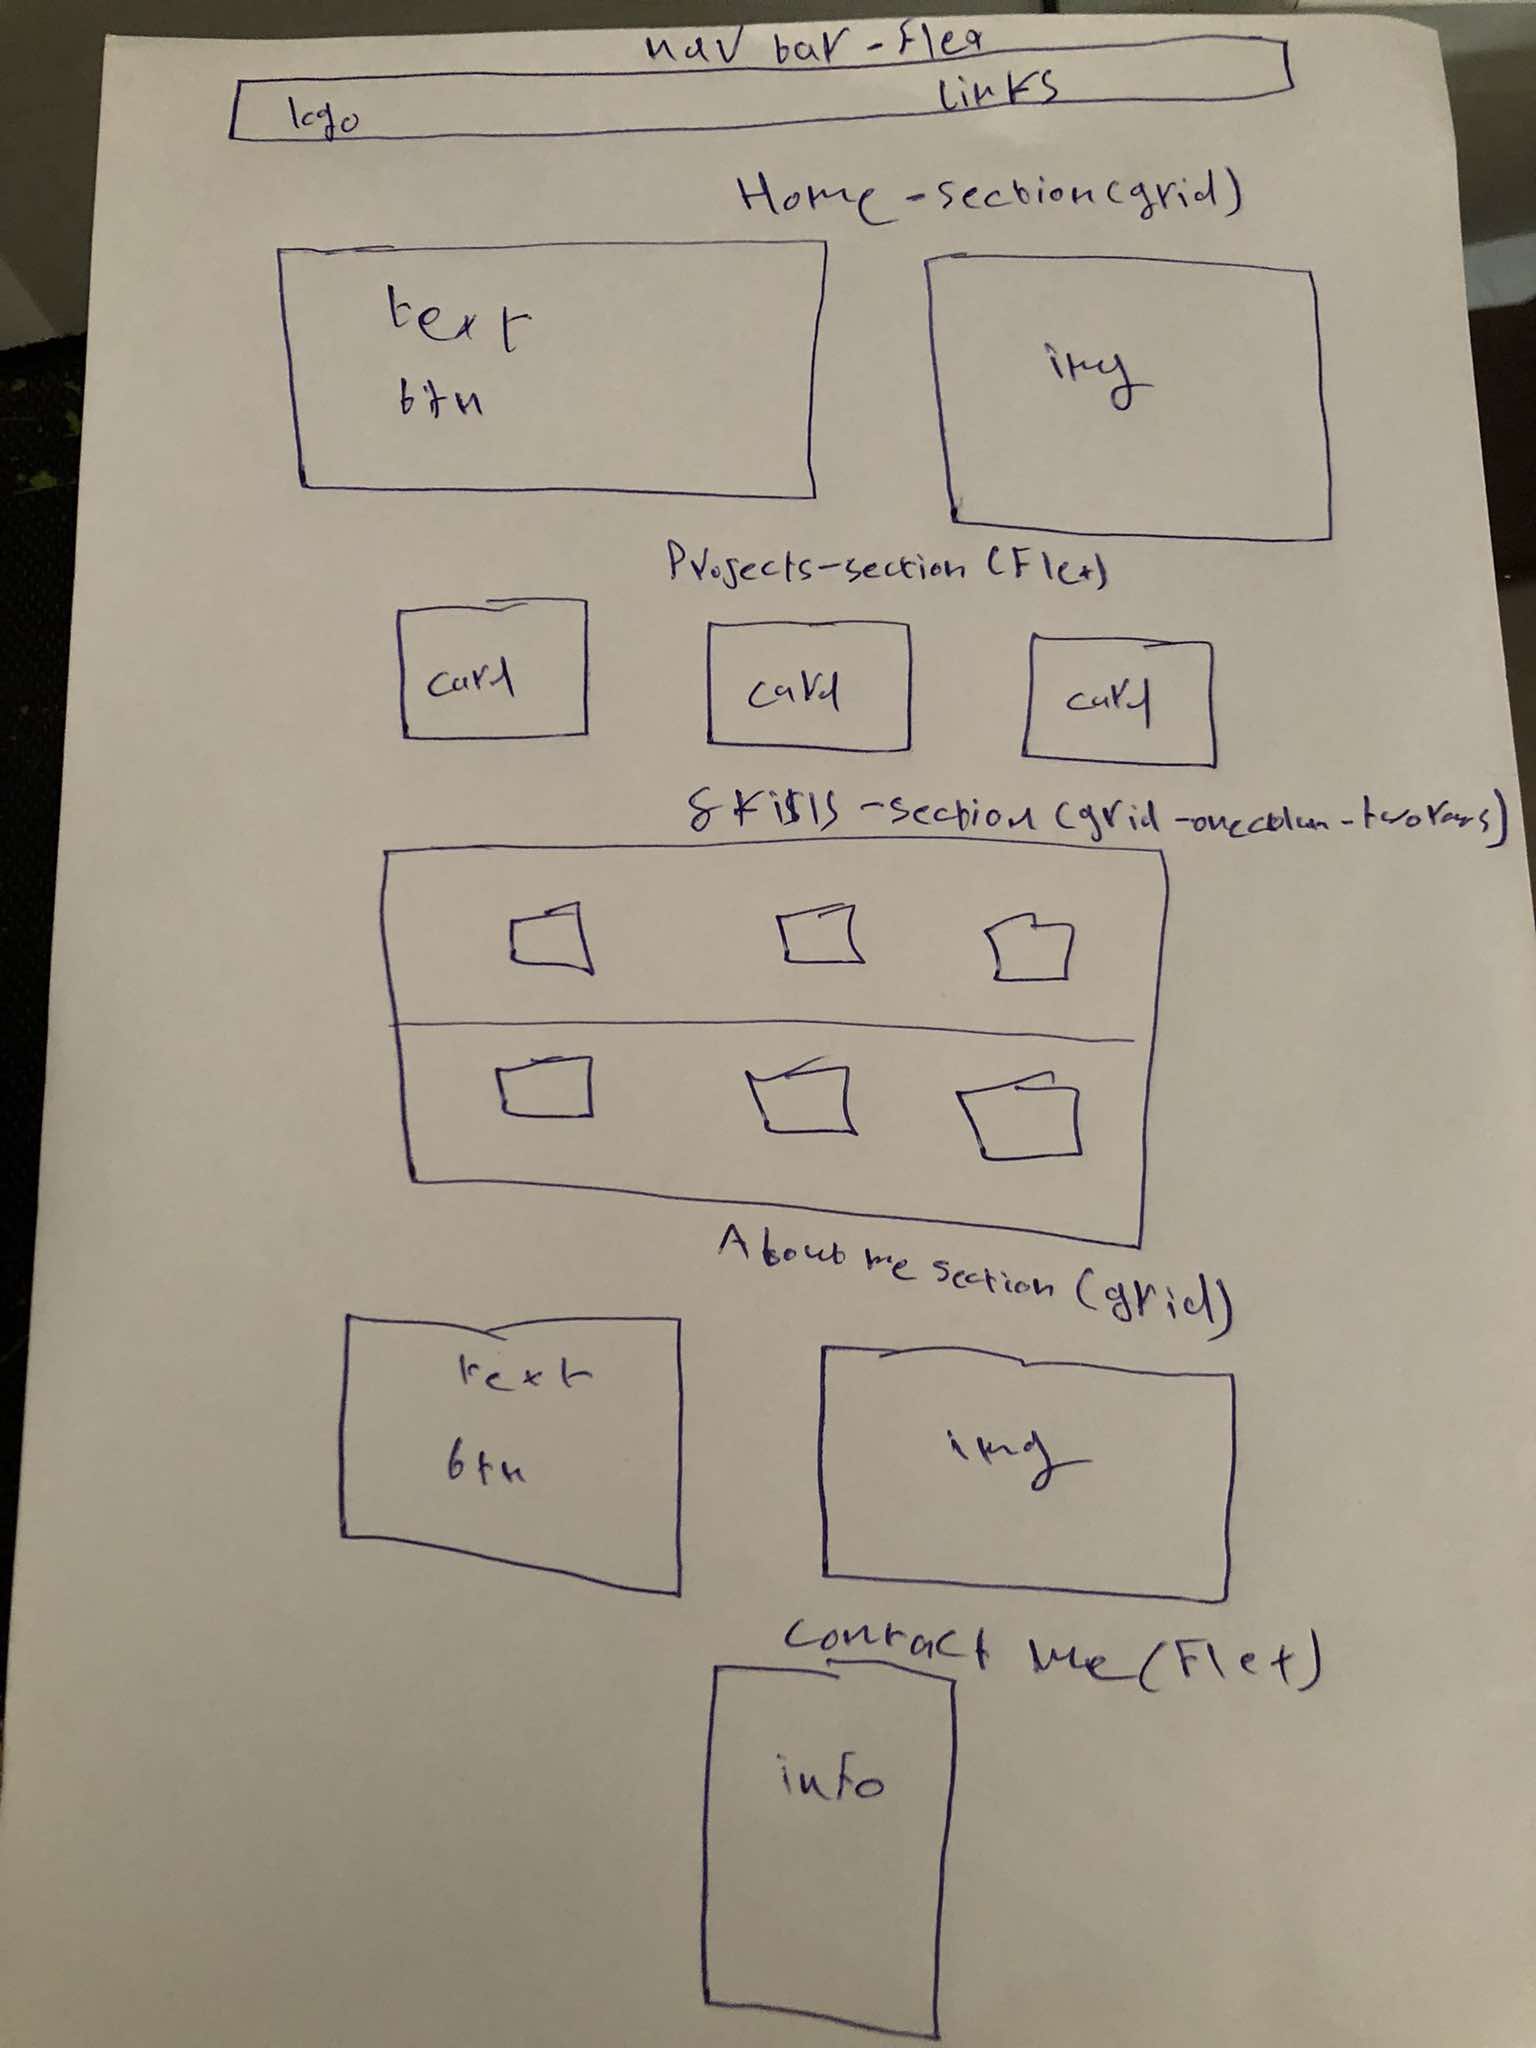 nav bar - Flex
logo
Links
Home - section (grid)
text
btn
img
Projects - section (Flex)
card
card
card
- section (grid - one colum - two rows)
About me section (grid)
text
btn
img
contact me (Flex)
info